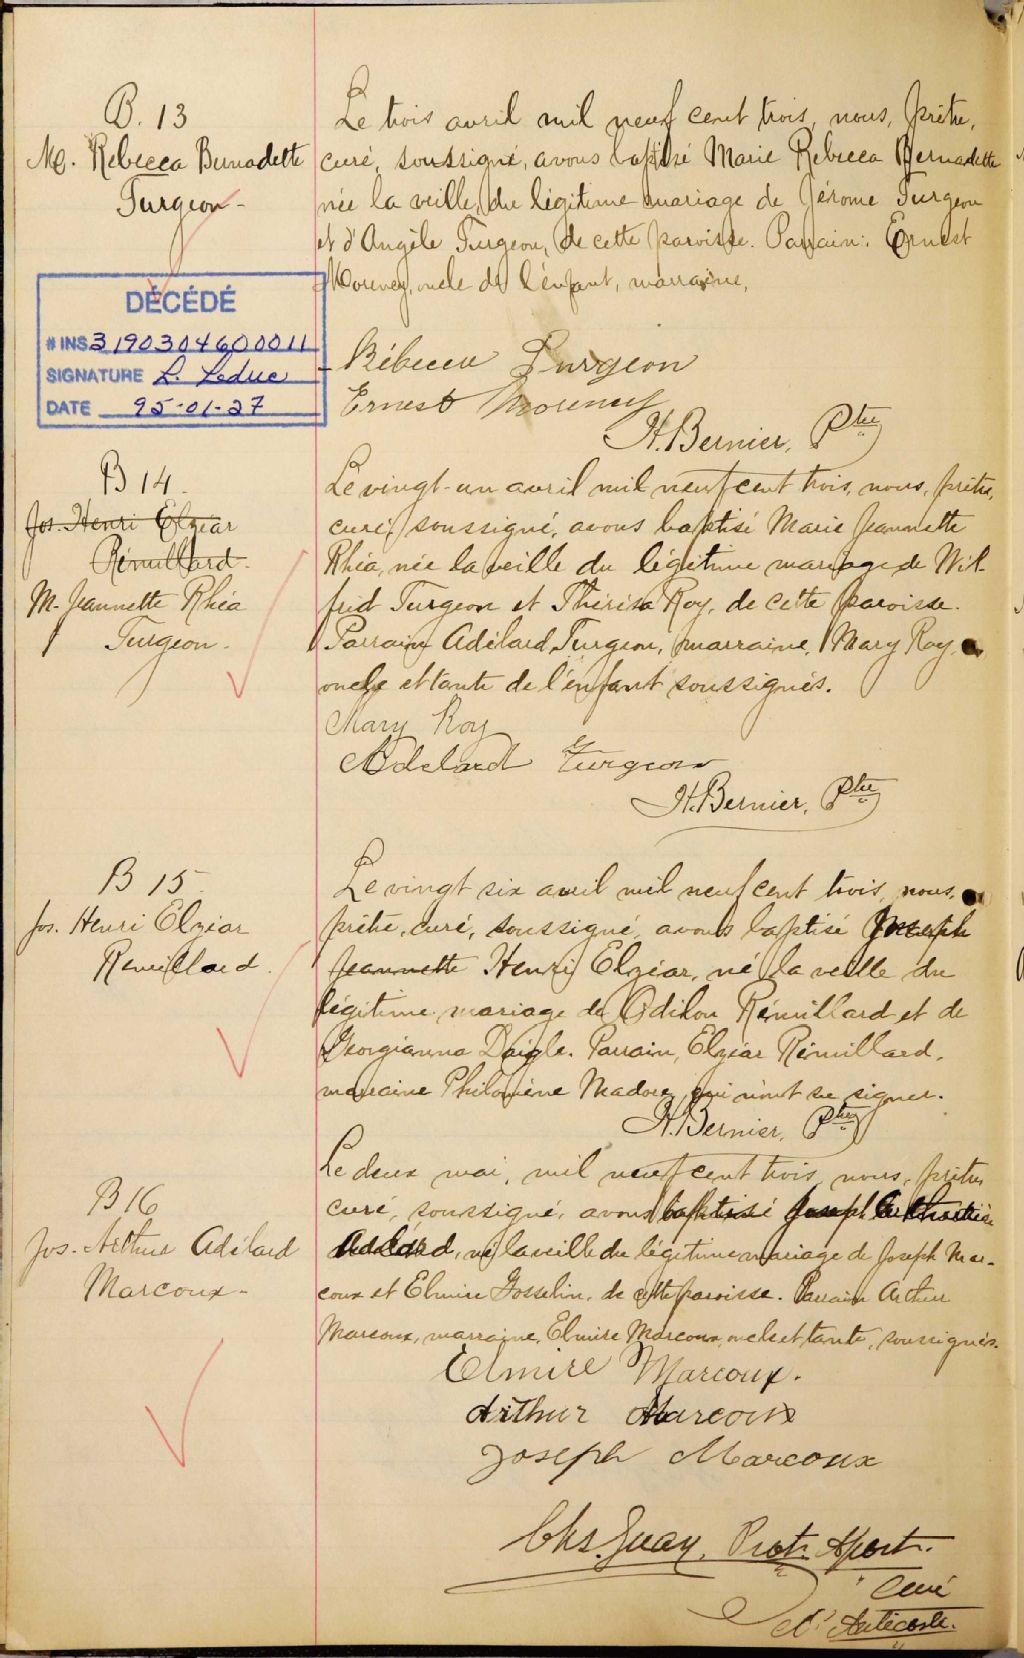 B. 13
M. Rebecca Bernadette
Turgeon -
Le trois avril mil neuf cent trois, nous, prêtre,
curé, soussigné, avons baptisé Marie Rebecca Bernadette
née la veille, du légitime mariage de Jérome Turgeon
et d'Angèle Turgeon, de cette paroisse. Parrain: Ernest
Morency, oncle de l'enfant, marraine,
DÉCÉDÉ
# INS 3190304600011
SIGNATURE L. Leduc
DATE 95-01-27
- Rébecca Turgeon
Ernest Morency
H. Bernier, Ptre
B 14.
Jos. Henri Elzéar
Rémillard.
M. Jeannette Rhéa
Turgeon.
Le vingt-un avril mil neuf cent trois, nous, prêtre,
curé, soussigné, avons baptisé Marie Jeannette
Rhéa, née la veille du légitime mariage de Wil-
frid Turgeon et Thérésa Roy, de cette paroisse.
Parrain Adélard Turgeon, marraine, Mary Roy,
oncle et tante de l'enfant soussignés.
Mary Roy
Adelard Turgeon
H. Bernier, Ptre
B 15.
Jos. Henri Elzéar
Remillard.
Le vingt six avril mil neuf cent trois, nous,
prêtre, curé, soussigné, avons baptisé Joseph
Jeannette Henri Elzéar, né la veille du
légitime mariage de Odilon Rémillard et de
Georgianna Daigle. Parrain, Elzéar Rémillard,
marraine Philomène Nadore, qui n'ont su signer.
H. Bernier, Ptre
B 16
Jos. Arthur Adélard
Marcoux -
Le deux mai, mil neuf cent trois, nous, prêtre
curé, soussigné, avons baptisé Joseph
Adélard, né la veille du légitime mariage de Joseph Mar-
coux et Elmire Gosselin, de cette paroisse. Parrain Arthur
Marcoux, marraine, Elmire Marcoux, oncle et tante, soussignés.
Elmire Marcoux.
Arthur Marcoux
Joseph Marcoux
Chs. Guay, Prot. Apost.
Curé
d'Anticosti.